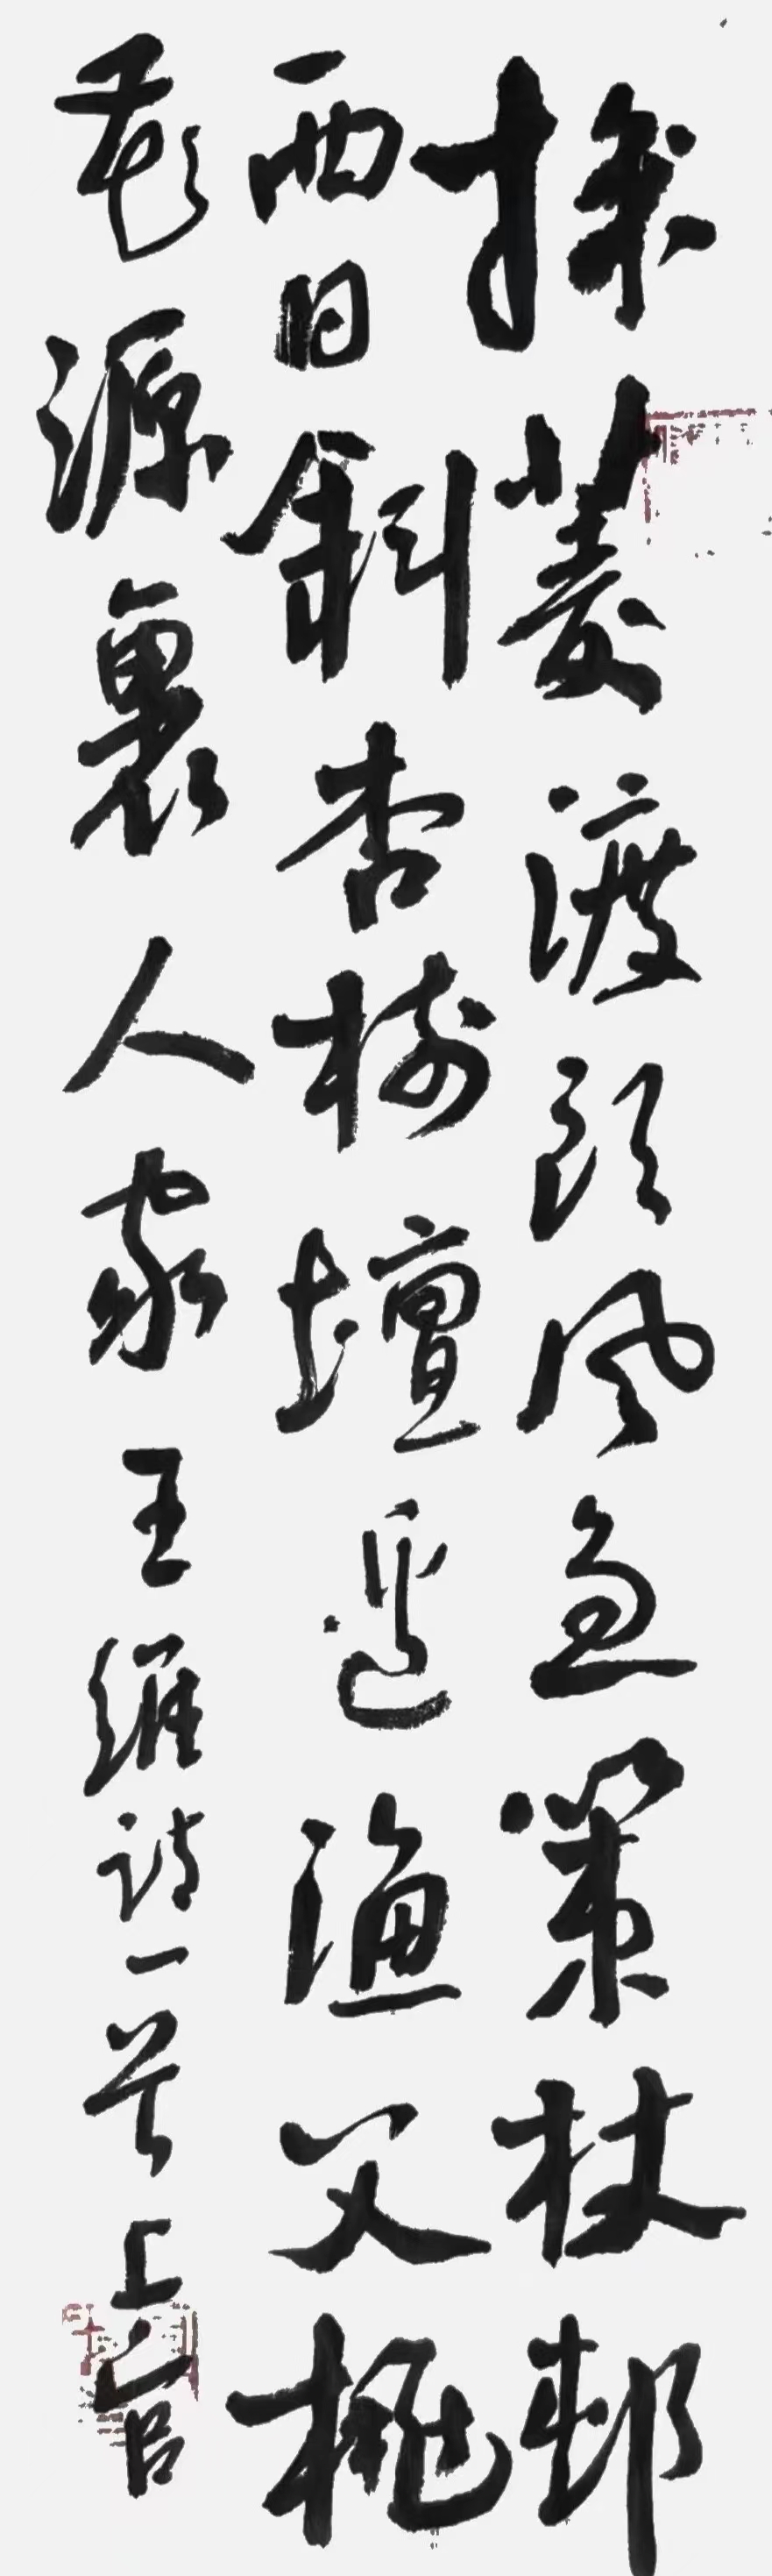 採菱渡頭風急策杖邨
西日斜杏樹壇邊漁父桃
花源裏人家王維詩一首上官